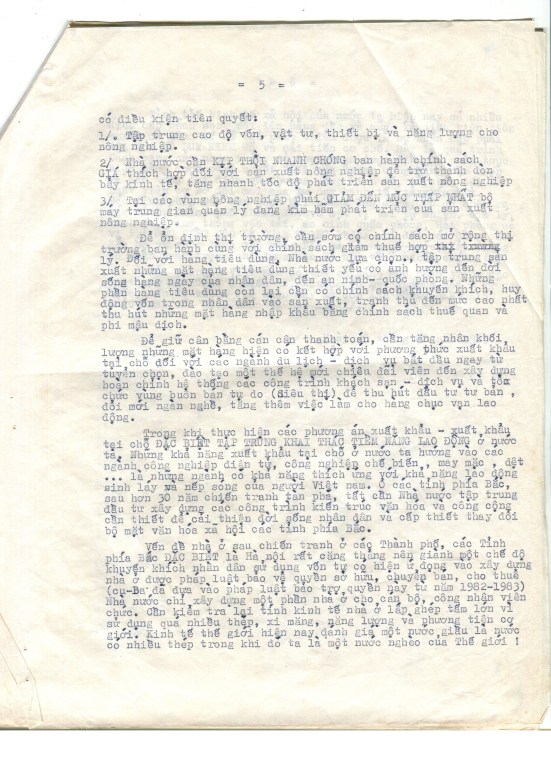 = 5 =
có điều kiện tiên quyết:
1/. Tập trung cao độ vốn, vật tư, thiết bị và năng lượng cho
nông nghiệp.
2/ Nhà nước cần KỊP THỜI NHANH CHÓNG ban hành chính sách
GIÁ thích hợp đối với sản xuất nông nghiệp để trở thành đòn
bẩy kinh tế, tăng nhanh tốc độ phát triển sản xuất nông nghiệp
3/ Tại các vùng nông nghiệp phải GIẢM ĐẾN MỨC THẤP NHẤT bộ
máy trung gian quản lý đang kìm hãm phát triển của sản xuất
nông nghiệp.
Để ổn định thị trường, cần sớm có chính sách mở rộng thị
trường ban hành cùng với chính sách giảm thuế hợp
lý. Đối với hàng tiêu dùng, Nhà nước lựa chọn, tập trung sản
xuất những mặt hàng tiêu dùng thiết yếu có ảnh hưởng đến đời
sống hàng ngày của nhân dân, đến an ninh- quốc phòng. Những
phần hàng tiêu dùng còn lại cần có chính sách khuyến khích, huy
động vốn trong nhân dân vào sản xuất, tranh thủ đến mức cao nhất
thu hút những mặt hàng nhập khẩu bằng chính sách thuế quan và
phi mậu dịch.
Để giữ cân bằng cán cân thanh toán, cần tăng nhanh khối
lượng những mặt hàng hiện có kết hợp với phương thức xuất khẩu
tại chỗ đối với các ngành du lịch - dịch vụ bắt đầu ngay từ
tuyển chọn, đào tạo một thế hệ mới chiêu đãi viên đến xây dựng
hoàn chỉnh hệ thống các công trình khách sạn - dịch vụ và tổ
chức vùng buôn bán tự do (siêu thị) để thu hút đầu tư tư bản,
đổi mới ngành nghề, tăng thêm việc làm cho hàng chục vạn lao
động.
Trong khi thực hiện các phương án xuất khẩu - xuất khẩu
tại chỗ ĐẶC BIỆT TẬP TRUNG KHAI THÁC TIỀM NĂNG LAO ĐỘNG ở nước
ta. Những khả năng xuất khẩu tại chỗ ở nước ta hướng vào các
ngành công nghiệp điện tử, công nghiệp chế biến, may mặc, dệt
... là những ngành có khả năng thích ứng với khả năng lao động
và nếp sống của người Việt nam. Ở các tỉnh phía Bắc,
sau hơn 30 năm chiến tranh tàn phá, tất cần Nhà nước tập trung
đầu tư xây dựng các công trình kiến trúc văn hóa và công cộng
cần thiết để cải thiện đời sống nhân dân và cấp thiết thay đổi
bộ mặt văn hóa xã hội các tỉnh phía Bắc.
Vấn đề nhà ở sau chiến tranh ở các Thành phố, các Tỉnh
phía Bắc ĐẶC BIỆT là Hà nội rất căng thẳng nên giành một chế độ
khuyến khích nhân dân sử dụng vốn tự có hiện ứ đọng vào xây dựng
nhà ở được pháp luật bảo vệ quyền sở hữu, chuyển bán, cho thuê
(Cu-Ba đã đưa vào pháp luật bảo trợ quyền này từ năm 1982-1983)
Nhà nước chỉ xây dựng một phần nhà ở cho cán bộ, công nhân viên
chức. Cần kiểm tra lại tính kinh tế nhà ở lắp ghép tấm lớn vì
sử dụng quá nhiều thép, xi măng, năng lượng và phương tiện cơ
giới. Kinh tế thế giới hiện nay đánh giá một nước giầu là nước
có nhiều thép trong khi đó ta là một nước nghèo của Thế giới !